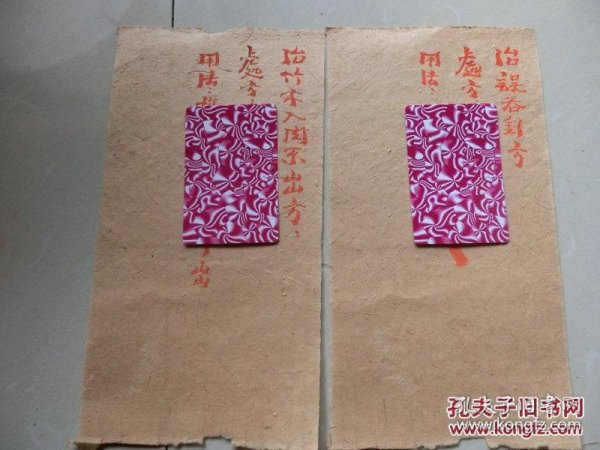 治误吞针方
處方
用法：
治竹木入肉不出方：
處方：
用法：
出
孔夫子旧书网
www.kongfz.com